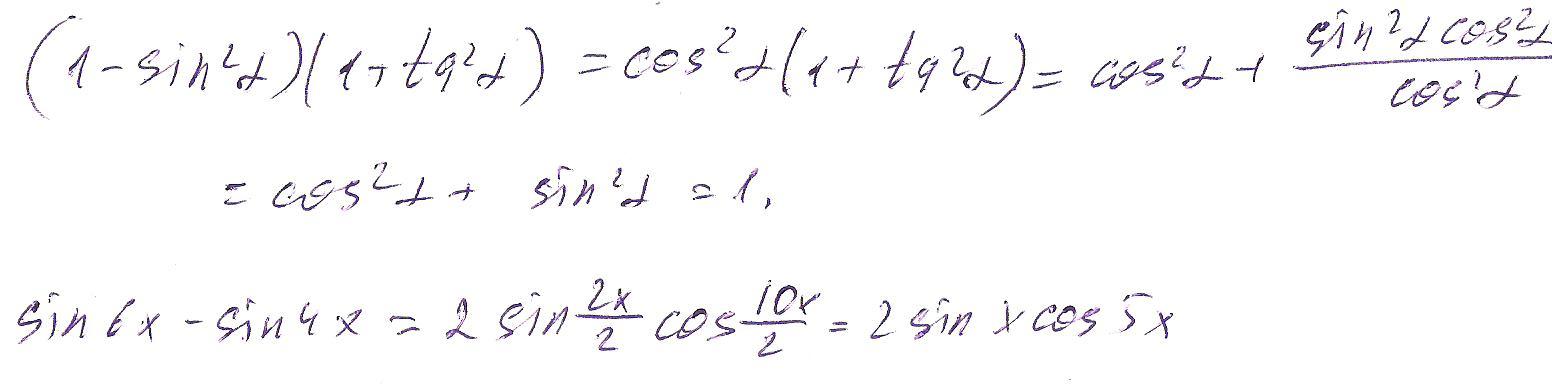 (1 - sin²α)(1 + tg²α) = cos²α(1 + tg²α) = cos²α + sin²α cos²α / cos²α
= cos²α + sin²α = 1.
sin 6x - sin 4x = 2 sin 2x/2 cos 10x/2 = 2 sin x cos 5x